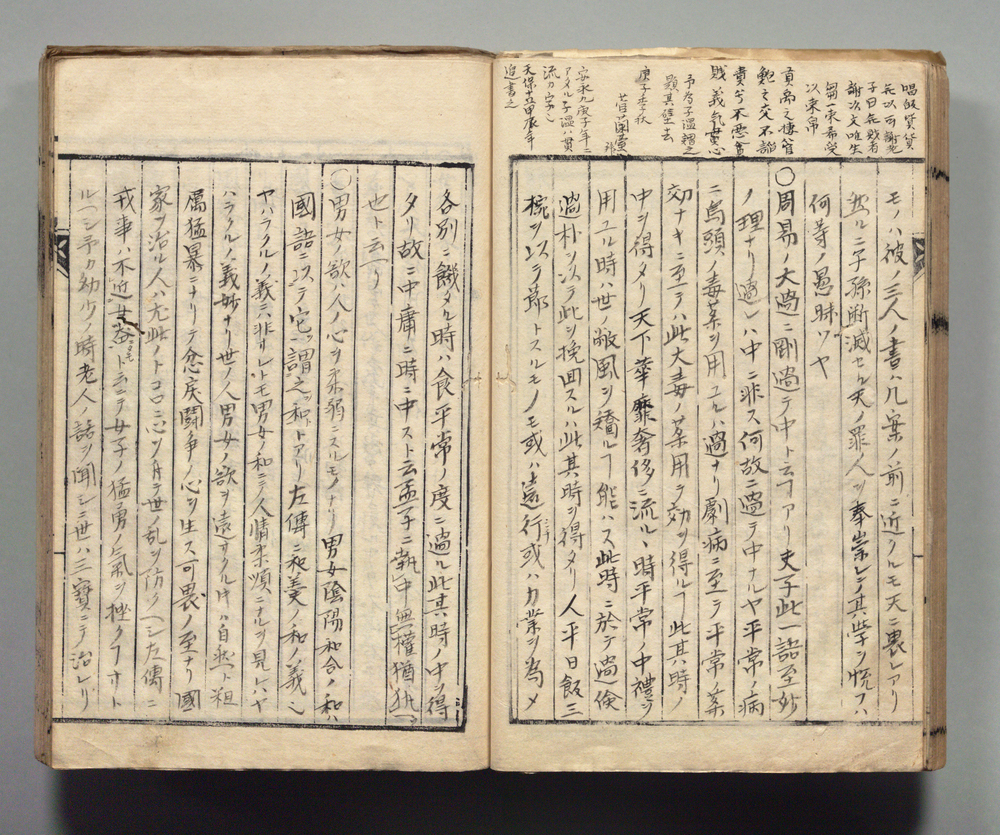 唱飯貸貸
兵以可謝老
子曰在賎者
謝以文唯生
芻一束希受
以束帛
貢禹之博管
鮑之交不諭
貴兮不悪曹
賎義気貫心
予為子温贈之
題其壁去
庚子季秋
安永九庚子年ニ
アタル子温ハ貫
流ノ字シ
天保十五甲辰年
追書之
モノハ彼ノ三人ノ書ハ几案ノ前ニ近クルモ天ニ畏レアリ
然ルニ子孫断滅セル天ノ罪人ヲ奉崇シ其学ヲ悦フハ
何等ノ愚昧ソヤ
〇周易ノ大過ニ剛過テ中ト云フアリ夫子此一語至妙
ノ理ナリ過レハ中ニ非ス何故ニ過テ中ナルヤ平常ノ病
ニ烏頭ノ毒薬ヲ用ユルハ過ナリ劇病ニ至テ平常ノ薬
効ナキニ至テハ此大毒ノ薬用ラ効ヲ得ルフ此其時ノ
中ヲ得タリ天下華靡奢侈ニ流ルヽ時平常ノ中禮ヲ
用ユル時ハ世ノ敝風ヲ矯ルフ能ハス此時ニ於テ過倹
過朴ヲ以ラ此ヲ挽回スルハ此其時ヲ得タリ人平日飯三
椀ヲ以ラ節トスルモノモ或ハ遠行或ハ力業ヲ為メ
各別ニ饑タル時ハ食平常ノ度ニ過ル此其時ノ中ヲ得
タリ故ニ中庸ニ時ニ中スト云孟子ニ執中無權猶執一
也ト云ヘリ
〇男女ノ欲ハ人ノ心ヲ柔弱ニスルモノナリ男女陰陽和合ノ和ハ
國語ニ以テ它謂之和トアリ左傳ニ和羹ノ和ノ義シ
ヤハラクルノ義ニ非サレトモ男女ノ和ニテ人情柔順ニナルヲ見レハヤ
ハラクルノ義妙ナリ世ノ人男女ノ欲ヲ遠サクル片ハ自然ト粗
厲猛暴ニナリテ忿戻闘争ノ心ヲ生ス可畏ノ至ナリ國
家ヲ治ル人ハ尤此ノトコロニ心ヲ用テ世ノ乱ヲ防クヘシ左傳ニ
戎事ハ不近女器ト云ニテ女子ノ猛勇ノ氣ヲ挫クフオト
ルヘシ予カ幼少ノ時老人ノ話ヲ聞シニ世ハ三寳ニテ治レリ